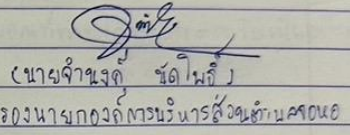 (นายจำนงค์ นัดโพธิ์)
รองนายกองค์การบริหารส่วนตำบลจอหอ